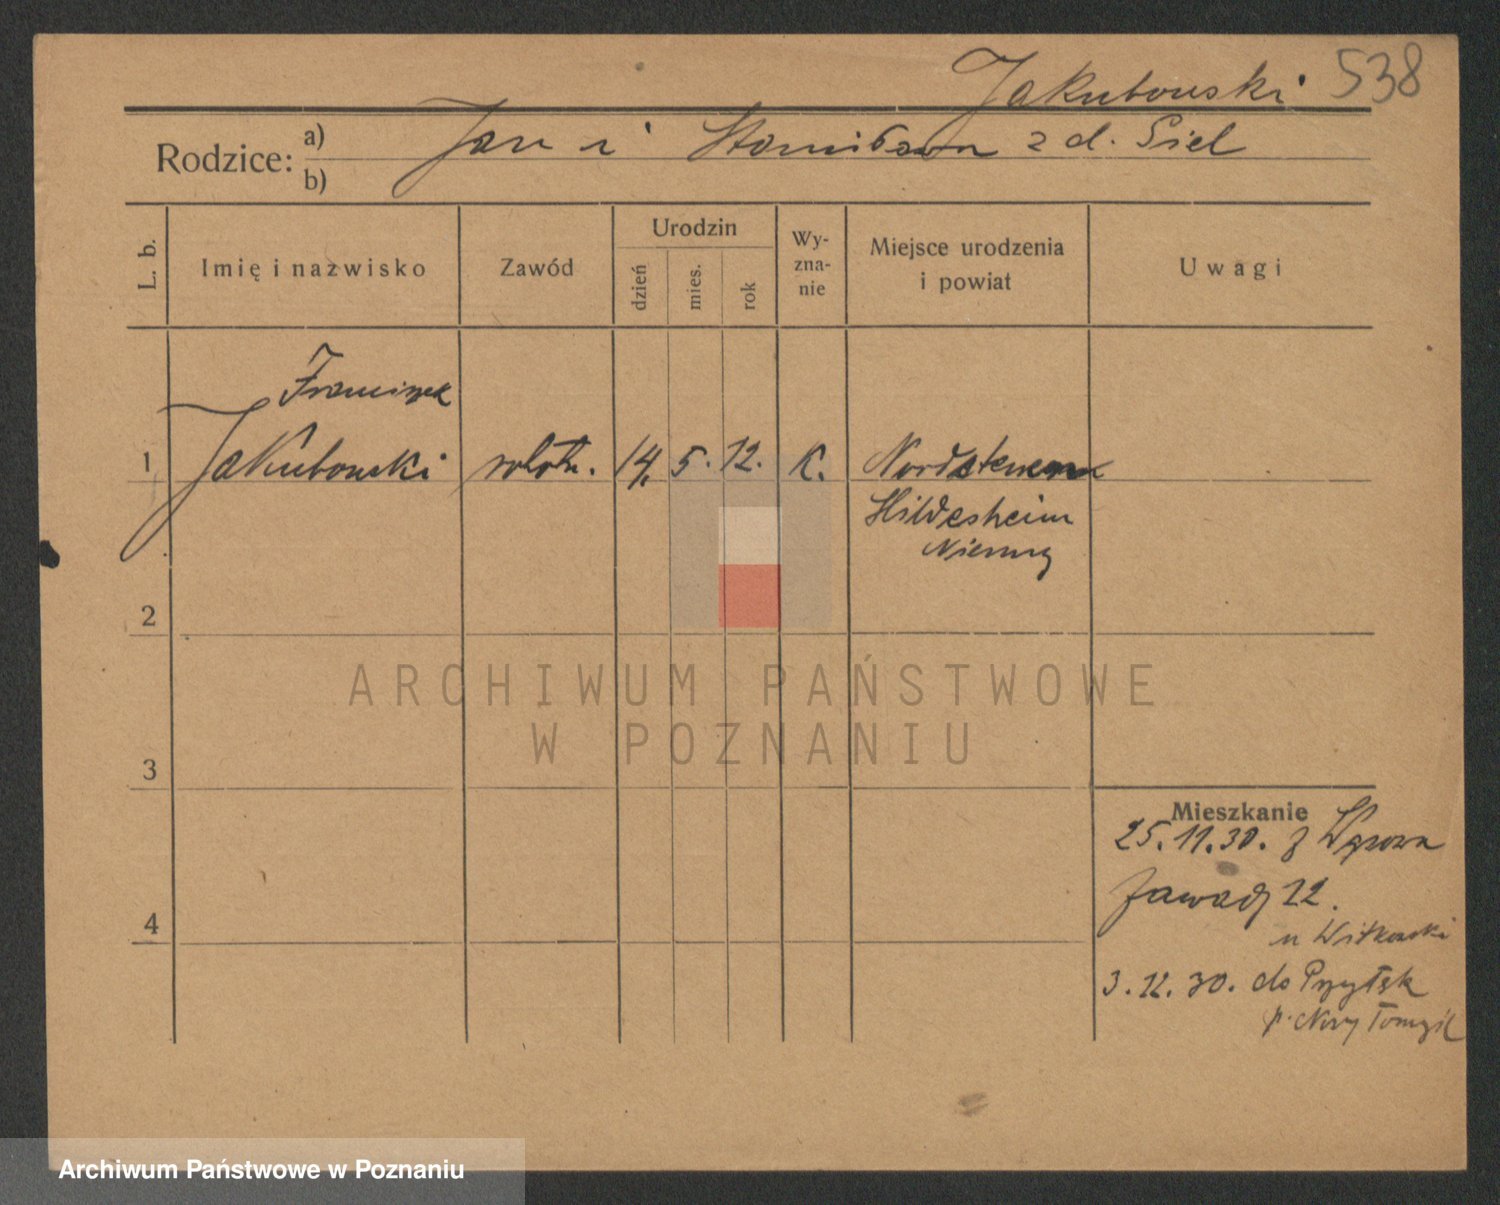 Jakubowski 538
Rodzice: a) Jan i Stanisława z d. Siel
b)
L. b. Imię i nazwisko Zawód Urodzin dzień mies. rok Wy-zna-nie Miejsce urodzenia i powiat Uwagi
Franciszek
1 Jakubowski robotn. 14. 5. 12. K. Nordstemen
Hildesheim
Niemcy
2
ARCHIWUM PAŃSTWOWE
W POZNANIU
3
Mieszkanie
25.11.30. z
Zawady 22.
4
u Witkowski
3.12.30. do Przyłęk
p. Nowy Tomyśl
Archiwum Państwowe w Poznaniu